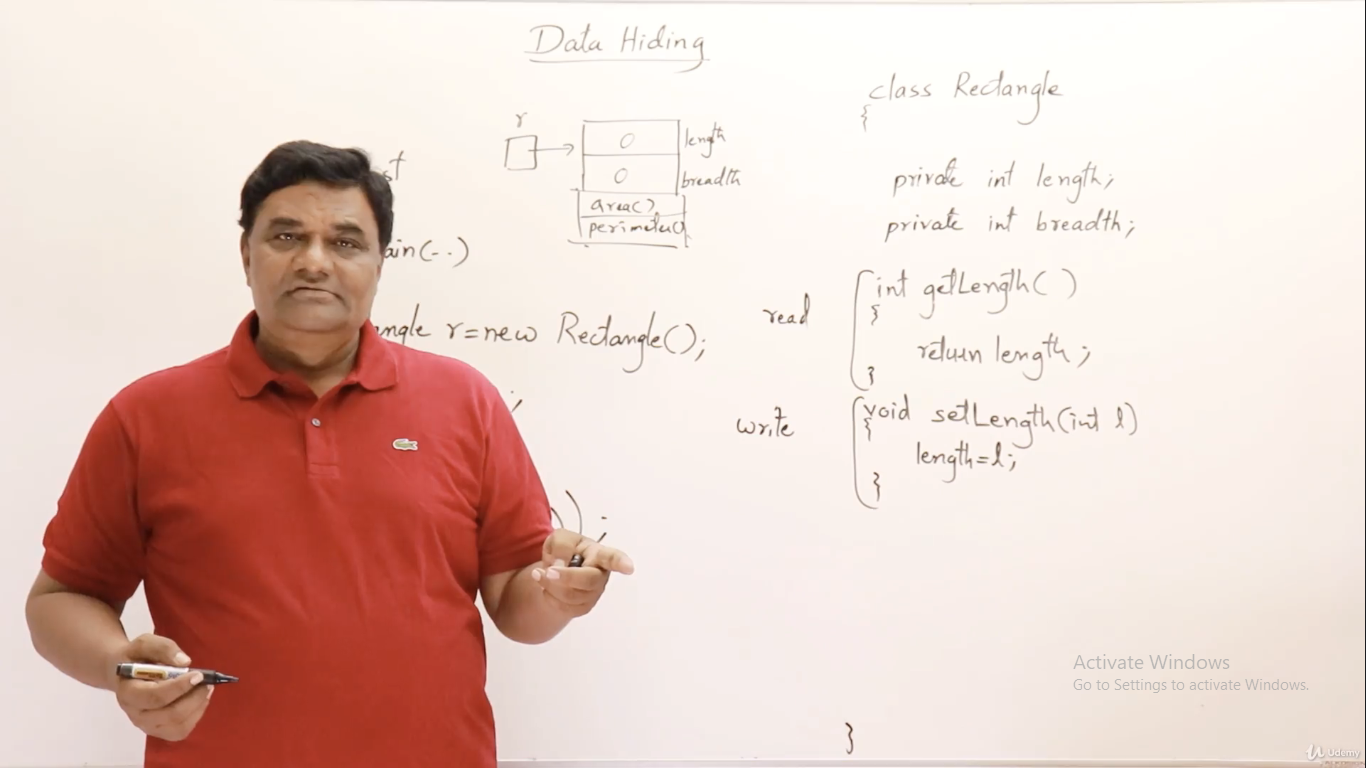 Data Hiding
r
0 length
0 breadth
area()
perimeter()
ain(--)
r=new Rectangle();
;
);
class Rectangle
{
private int length;
private int breadth;
read
int getLength( )
{
return length;
}
write
void setLength(int l)
{
length=l;
}
}
Activate Windows
Go to Settings to activate Windows.
Udemy